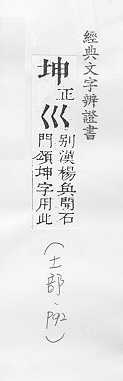 經典文字辨證書
坤正
巛別漢楊㒷開石
門頌坤字用此
(土部·P92)